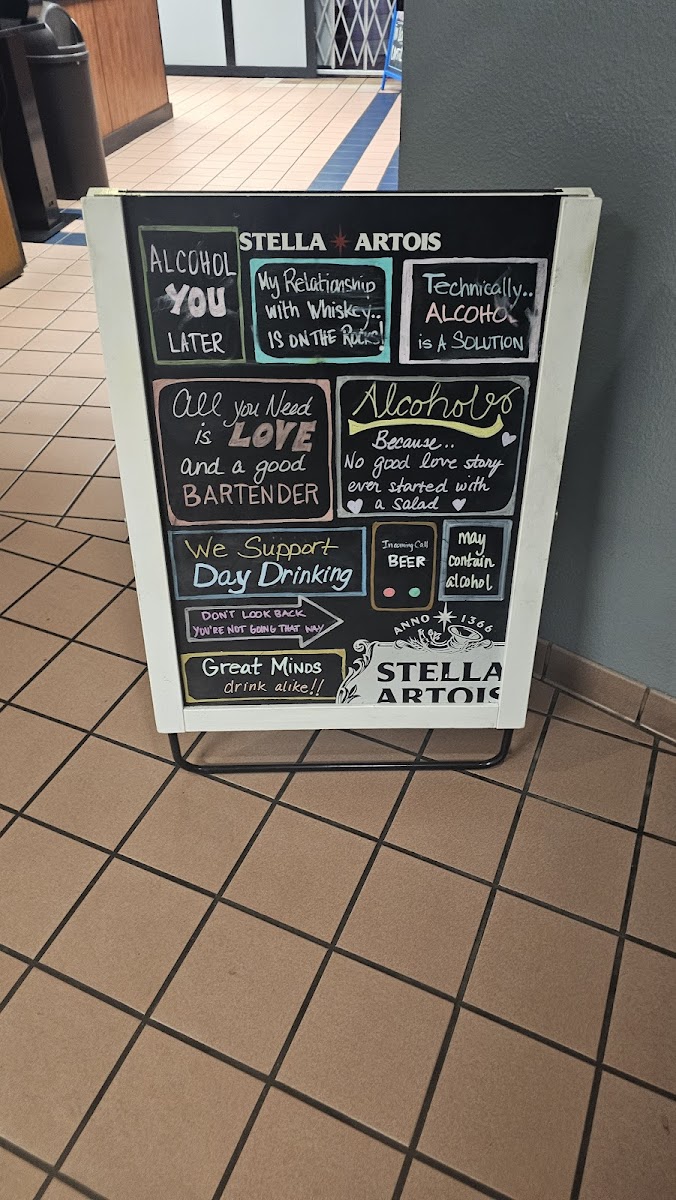 STELLA ARTOIS
ALCOHOL
YOU
LATER
My Relationship
with Whiskey..
IS ON THE ROCKS!
Technically..
ALCOHOL
is A SOLUTION
All you Need
is LOVE
and a good
BARTENDER
Alcohol
Because..
No good love story
ever started with
a salad
We Support
Day Drinking
Incoming Call
BEER
may
contain
alcohol
DON'T LOOK BACK
YOU'RE NOT GOING THAT WAY
GREAT MINDS
drink alike!!
ANNO 1366
STELLA
ARTOIS